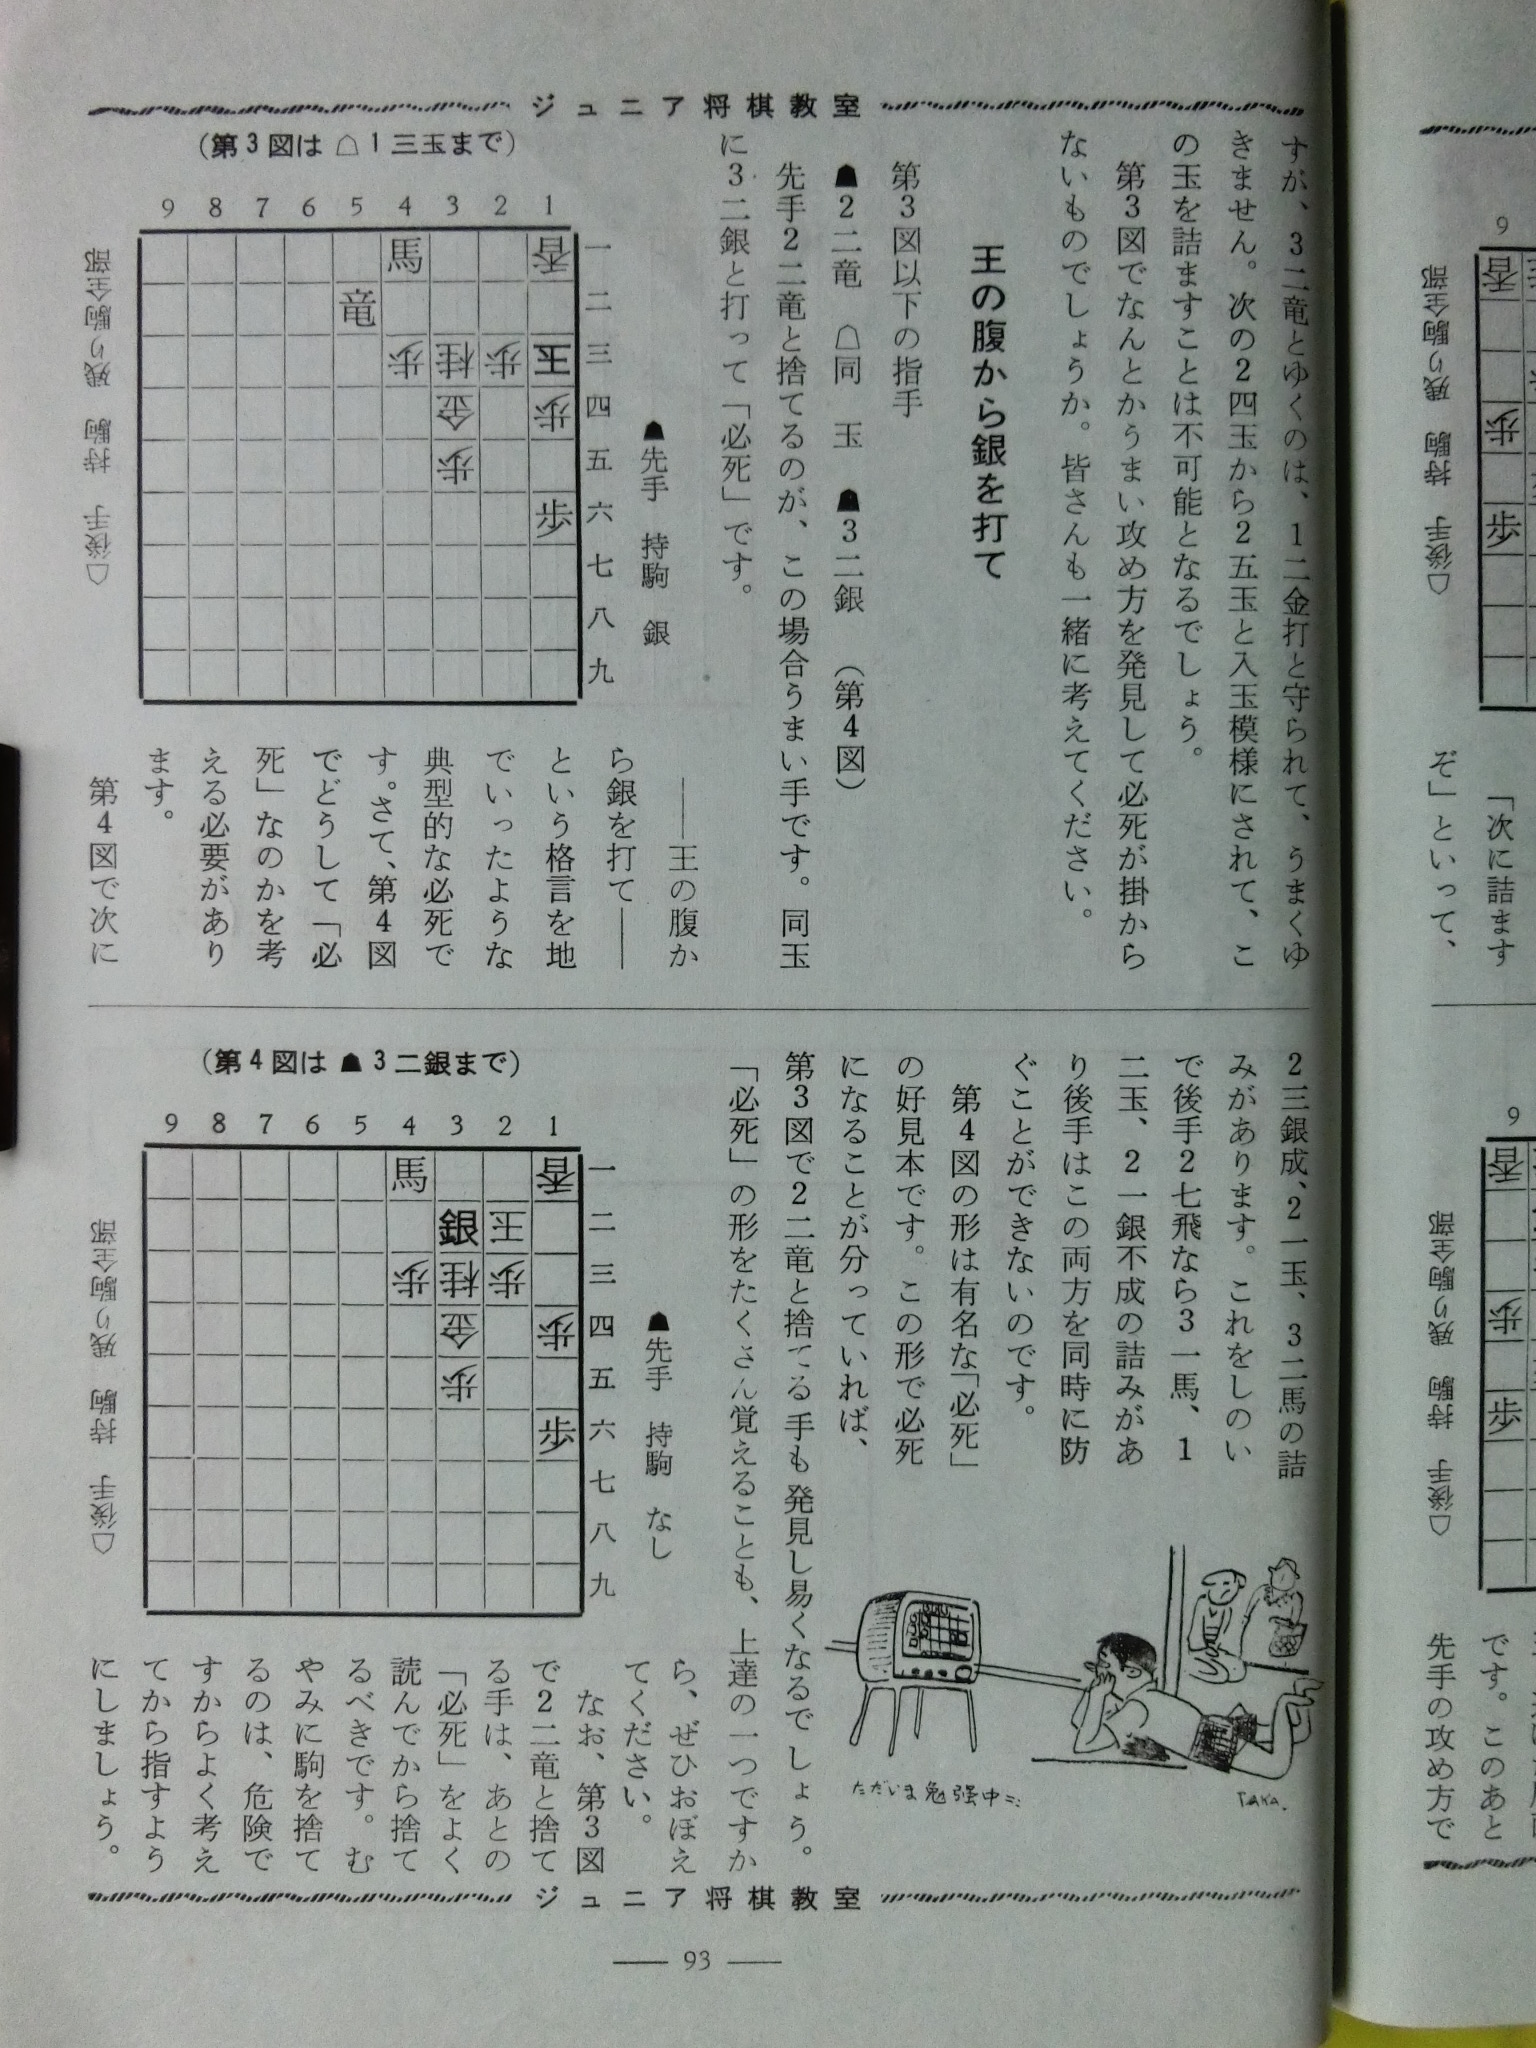 ジュニア将棋教室
すが、3二竜とゆくのは、1二金打と守られて、うまくゆ
きません。次の2四玉から2五玉と入玉模様にされて、こ
の玉を詰ますことは不可能となるでしょう。
第3図でなんとかうまい攻め方を発見して必死が掛から
ないものでしょうか。皆さんも一緒に考えてください。
王の腹から銀を打て
第3図以下の指手
☗2二竜 ☖同 玉 ☗3二銀 (第4図)
先手2二竜と捨てるのが、この場合うまい手です。同玉
に3二銀と打って「必死」です。
(第3図は☖1三玉まで)
9 8 7 6 5 4 3 2 1
馬 香
竜
歩 桂 歩 玉
金 歩
歩
歩
一
二
三
四
五
六
七
八
九
☗先手 持駒 銀
☖後手 持駒 残り駒全部
――王の腹か
ら銀を打て――
という格言を地
でいったような
典型的な必死で
す。さて、第4図
でどうして「必
死」なのかを考
える必要があり
ます。
第4図で次に
2三銀成、2一玉、3二馬の詰
みがあります。これをしのい
で後手2七飛なら3一馬、1
二玉、2一銀不成の詰みがあ
り後手はこの両方を同時に防
ぐことができないのです。
第4図の形は有名な「必死」
の好見本です。この形で必死
になることが分っていれば、
第3図で2二竜と捨てる手も発見し易くなるでしょう。
「必死」の形をたくさん覚えることも、上達の一つですか
ら、ぜひおぼえ
てください。
なお、第3図
で2二竜と捨て
る手は、あとの
「必死」をよく
読んでから捨て
るべきです。む
やみに駒を捨て
るのは、危険で
すからよく考え
てから指すよう
にしましょう。
(第4図は☗3二銀まで)
9 8 7 6 5 4 3 2 1
馬 香
銀 玉
歩 桂 歩
金 歩
歩
歩
一
二
三
四
五
六
七
八
九
☗先手 持駒 なし
☖後手 持駒 残り駒全部
ただいま勉強中
TAKA.
ジュニア将棋教室
― 93 ―
9
香
歩
歩
☖後手 持駒 残り駒全部
「次に詰ます
ぞ」といって、
9
香
歩
歩
☖後手 持駒 残り駒全部
です。このあと
先手の攻め方で